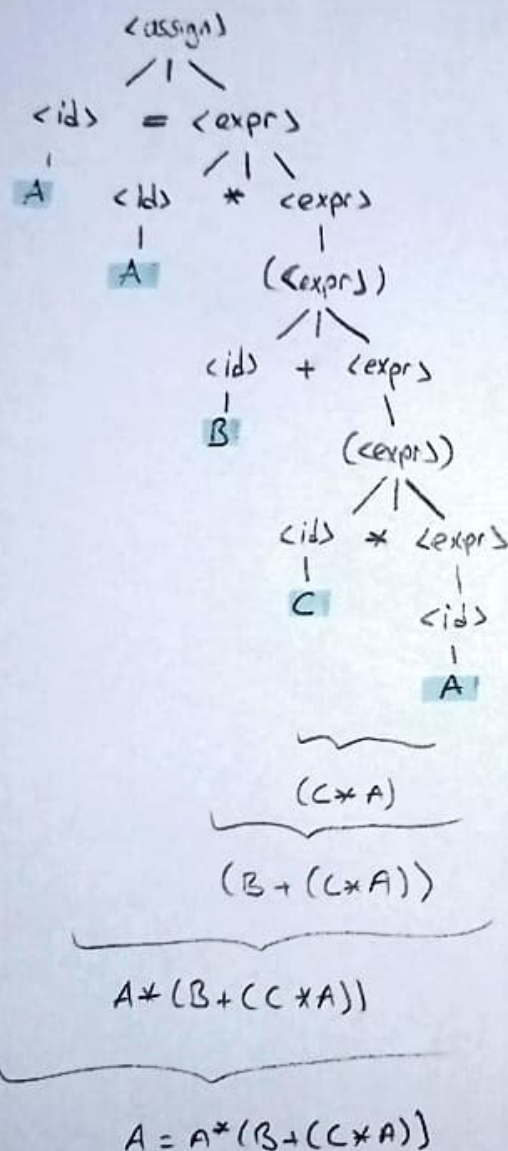 <assign>
<id> = <expr>
A <id> * <expr>
A (<expr>)
<id> + <expr>
B (<expr>)
<id> * <expr>
C <id>
A
(C*A)
(B+(C*A))
A*(B+(C*A))
A = A*(B+(C*A))